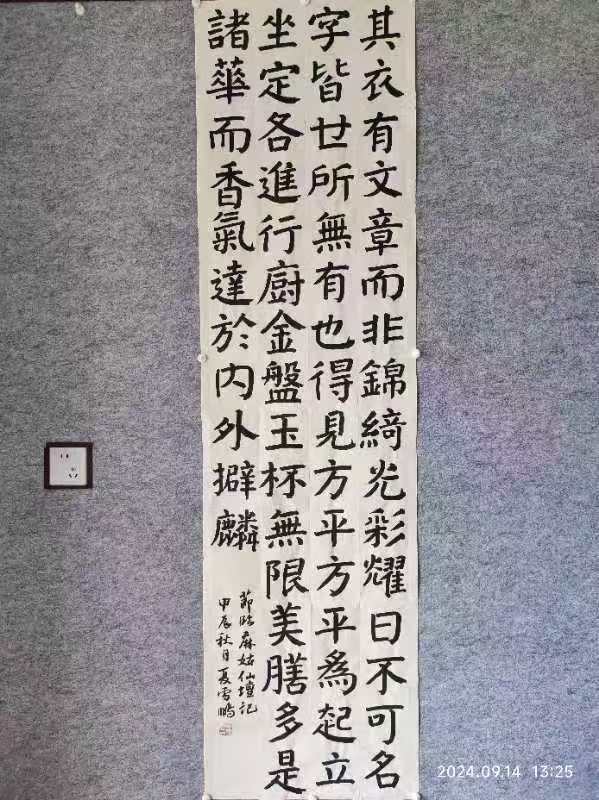 其衣有文章而非錦綺光彩耀曰不可名
字皆世所無有也得見方平方平為起立
坐定各進行廚金盤玉杯無限美膳多是
諸華而香氣達於內外擗麟
節臨麻姑仙壇記
甲辰秋月夏雪鵬
2024.09.14 13:25